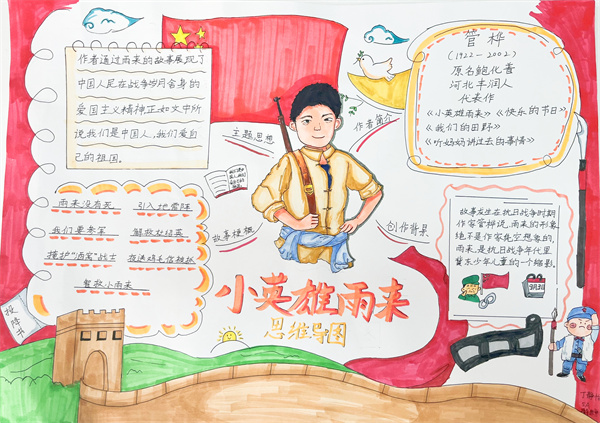 作者通过雨来的故事展现了
中国人民在战争岁月舍身的
爱国主义精神正如文中所
说我们是中国人,我们爱自
己的祖国。
管桦
(1922-2002)
原名鲍化普
河北丰润人
代表作
《小英雄雨来》《快乐的节日》
《我们的田野》
《听妈妈讲过去的事情》
主题思想
作者简介
故事梗概
创作背景
雨来没有死
引人地雷阵
我们要参军
解救女政英
掩护“酒窝”战士
夜送鸡毛信被抓
智救小雨来
故事发生在抗日战争时期
作家管桦说,雨来的形象
绝不是作家凭空想象的,
雨来是抗日战争年代里
冀东少年儿童的一个缩影。
小英雄雨来
思维导图
投降书